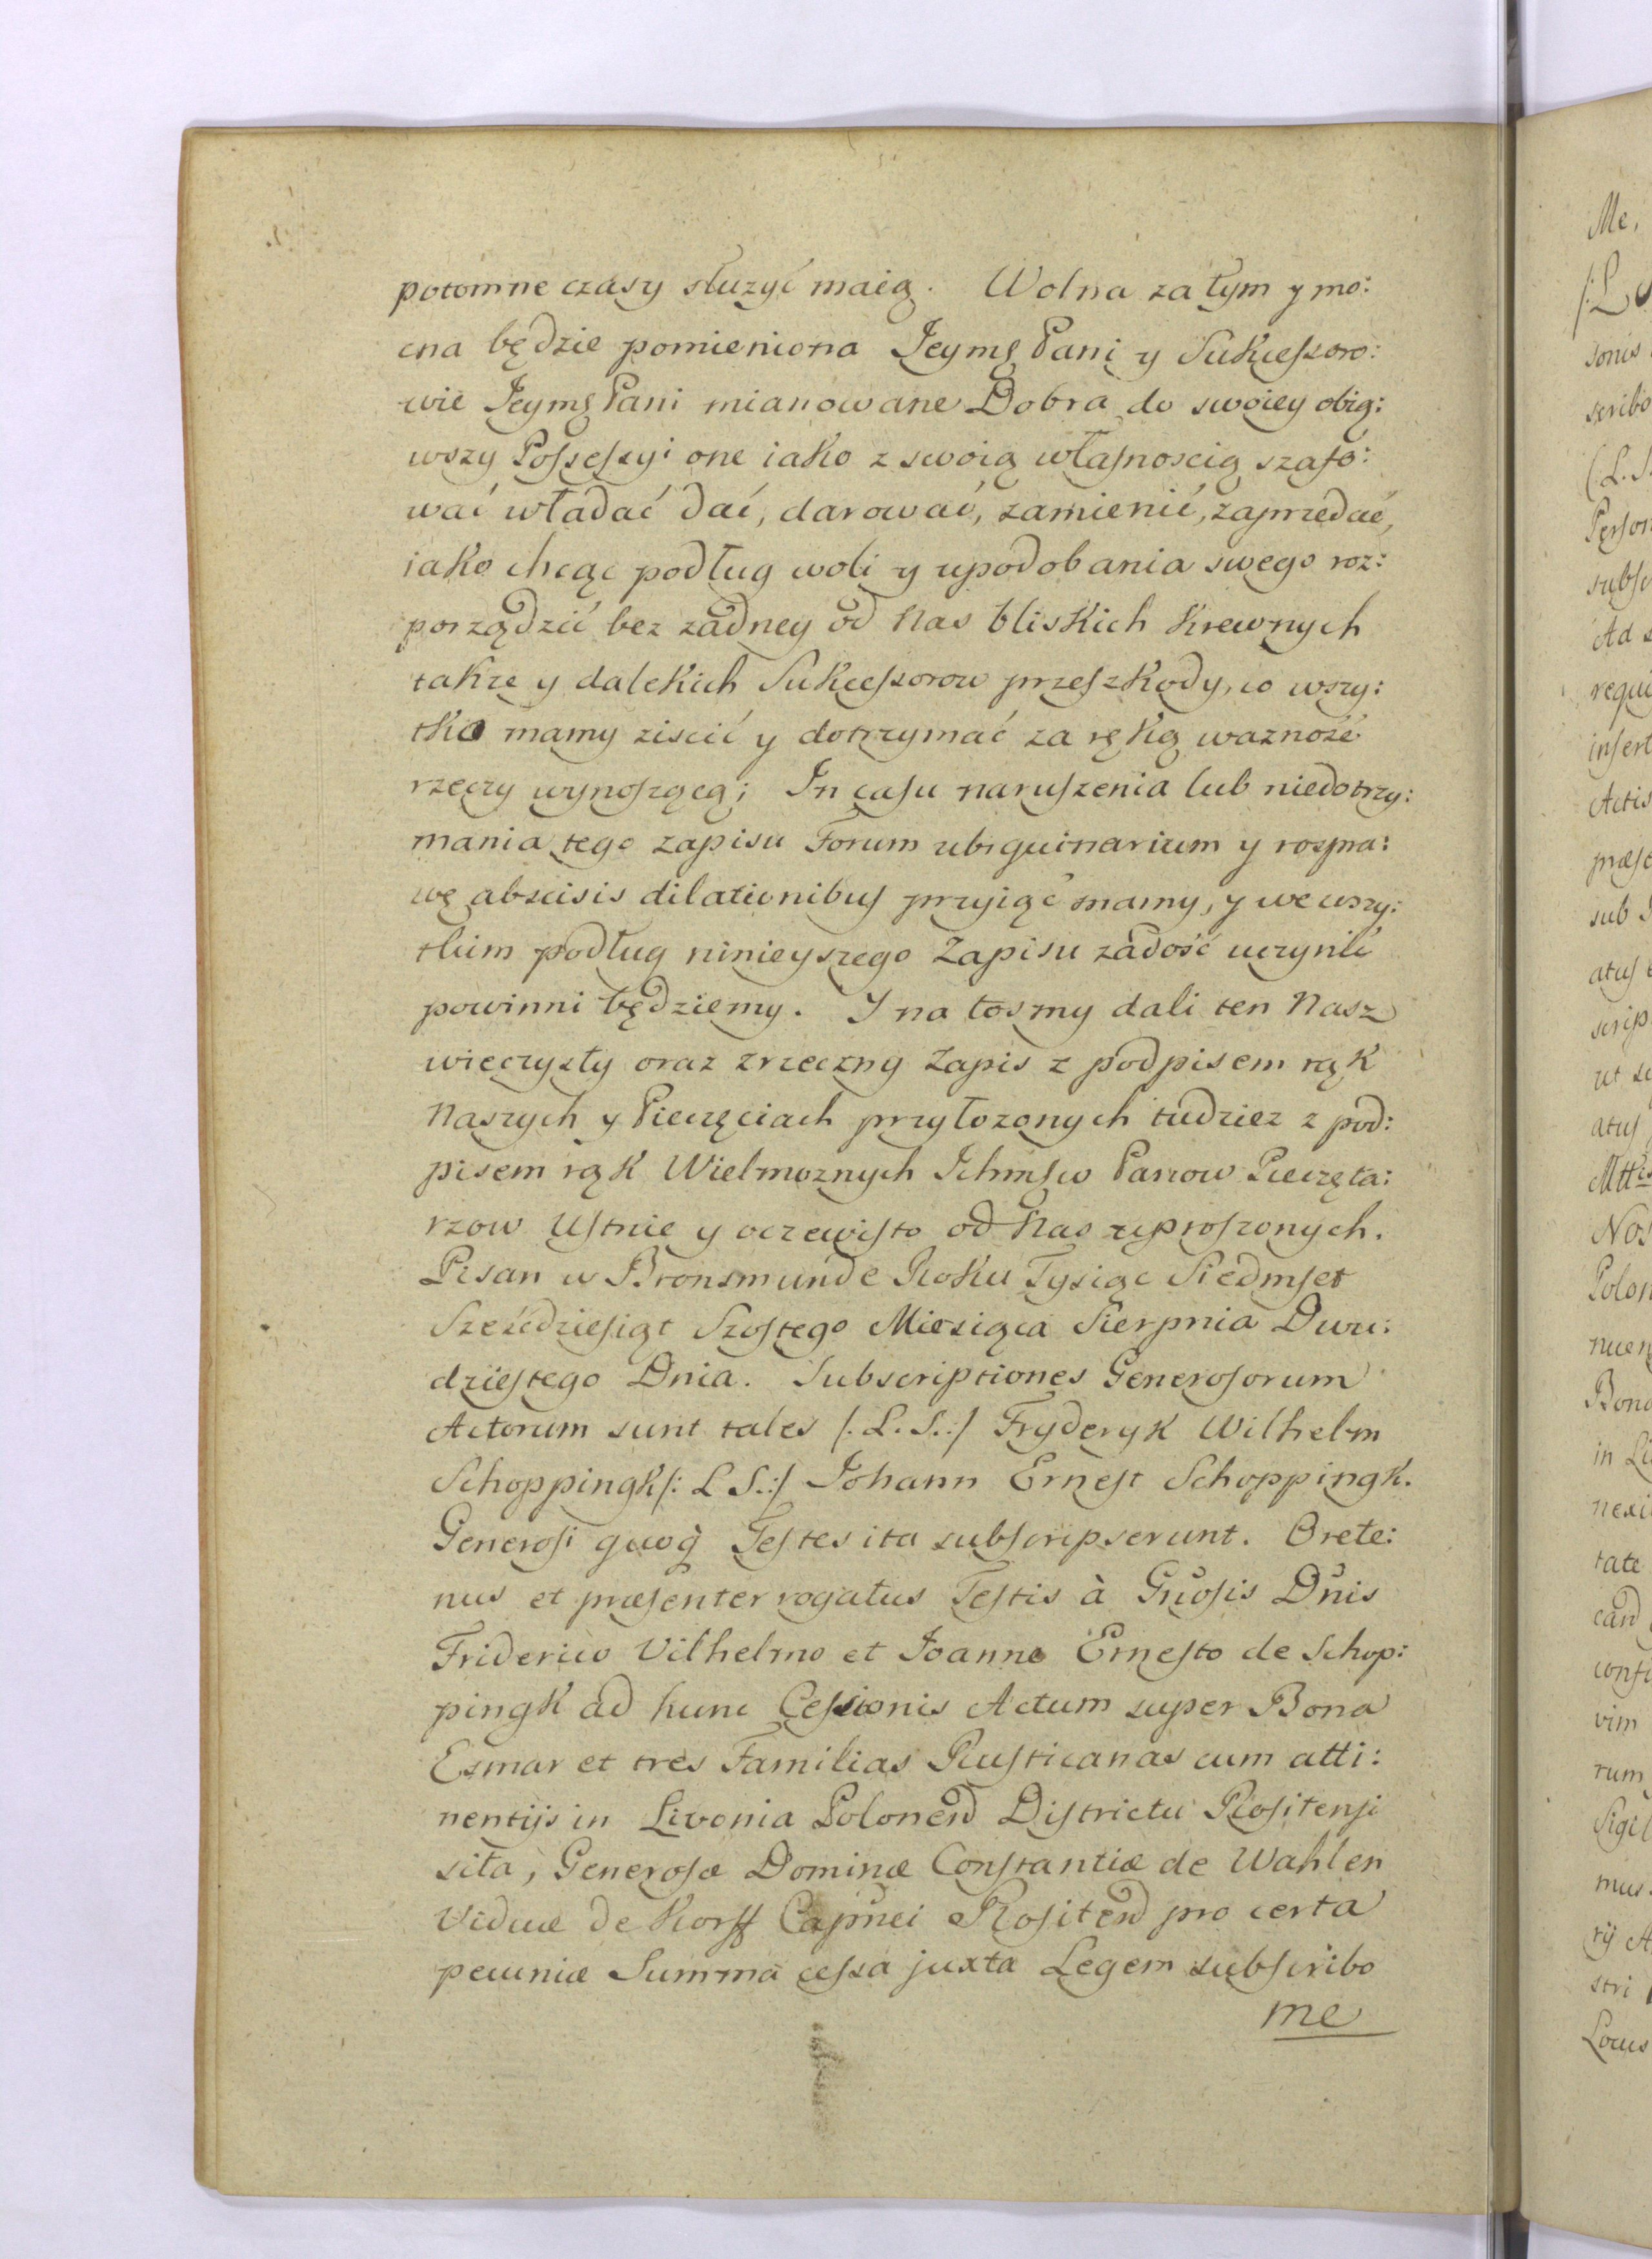 potomne czasy słuzyć maią. Wolna za tym y mo:
cna będzie pomieniona Jeymę Pani y Sukcessoro:
wie Jeymę Pani mianowane Dobra do swoiey obią:
wszy Possessyi one iako z swoią własnoscią szafo:
wać władać dać, darować, zamienić, zaprzedać,
iako chcąc podług woli y upodobania swego roz:
porządzić bez zadney od Nas bliskich Krewnych
takze y dalekich Sukcessorow przeszkody, co wszy:
tko mamy ziscić y dotrzymać za ręką wazność
rzeczy wynoszącą; In casu naruszenia lub niedotrzy:
mania tego zapisu Forum ubiquinarium y rospra:
wę abscisis dilationibus przyiąć mamy, y we wszy:
tkim podług ninieyszego Zapisu zadość uczynić
powinni będziemy. I na tosmy dali ten Nasz
wieczysty oraz zrzeczny Zapis z podpisem rąk
Naszych y Pieczęciach przyłozonych tudziez z pod:
pisem rąk Wielmoznych Ichmsw Panow Pieczęta:
rzow Ustnie y oczewisto od Nas uproszonych.
Pisan w Bronsmunde Roku Tysiąc Siedmset
Sześćdziesiąt Szostego Miesiąca Sierpnia Dwu:
dziestego Dnia. Subscriptiones Generosorum
Actorum sunt tales /:L.S.:/ Fryderyk Wilhelm
Schoppingk /:L S.:/ Johann Ernest Schoppingk.
Generosi quoq̀ Testes ita subscripserunt. Orete:
nus et præsenter rogatus Testis à Gn̄osis Dn̄is
Friderico Vilhelmo et Joanne Ernesto de Schop:
pingk ad hunc Cessionis Actum super Bona
Esmar et tres Familias Rusticanas cum atti:
nentijs in Livonia Polonen̄ Districtu Rositensi
sita, Generosæ Dominæ Constantiæ de Wahlen
Viduæ de Korff Capn̄ei Rositen̄ pro certa
pecuniæ Summa cessa juxta Legem subscribo
me